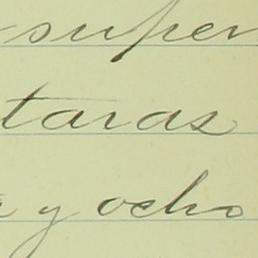 super
taras
y ocho